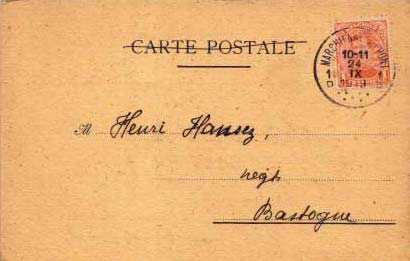 CARTE POSTALE
MARCHIENNE
10-11
24
IX
M Henri Hansez,
negt
Bastogne